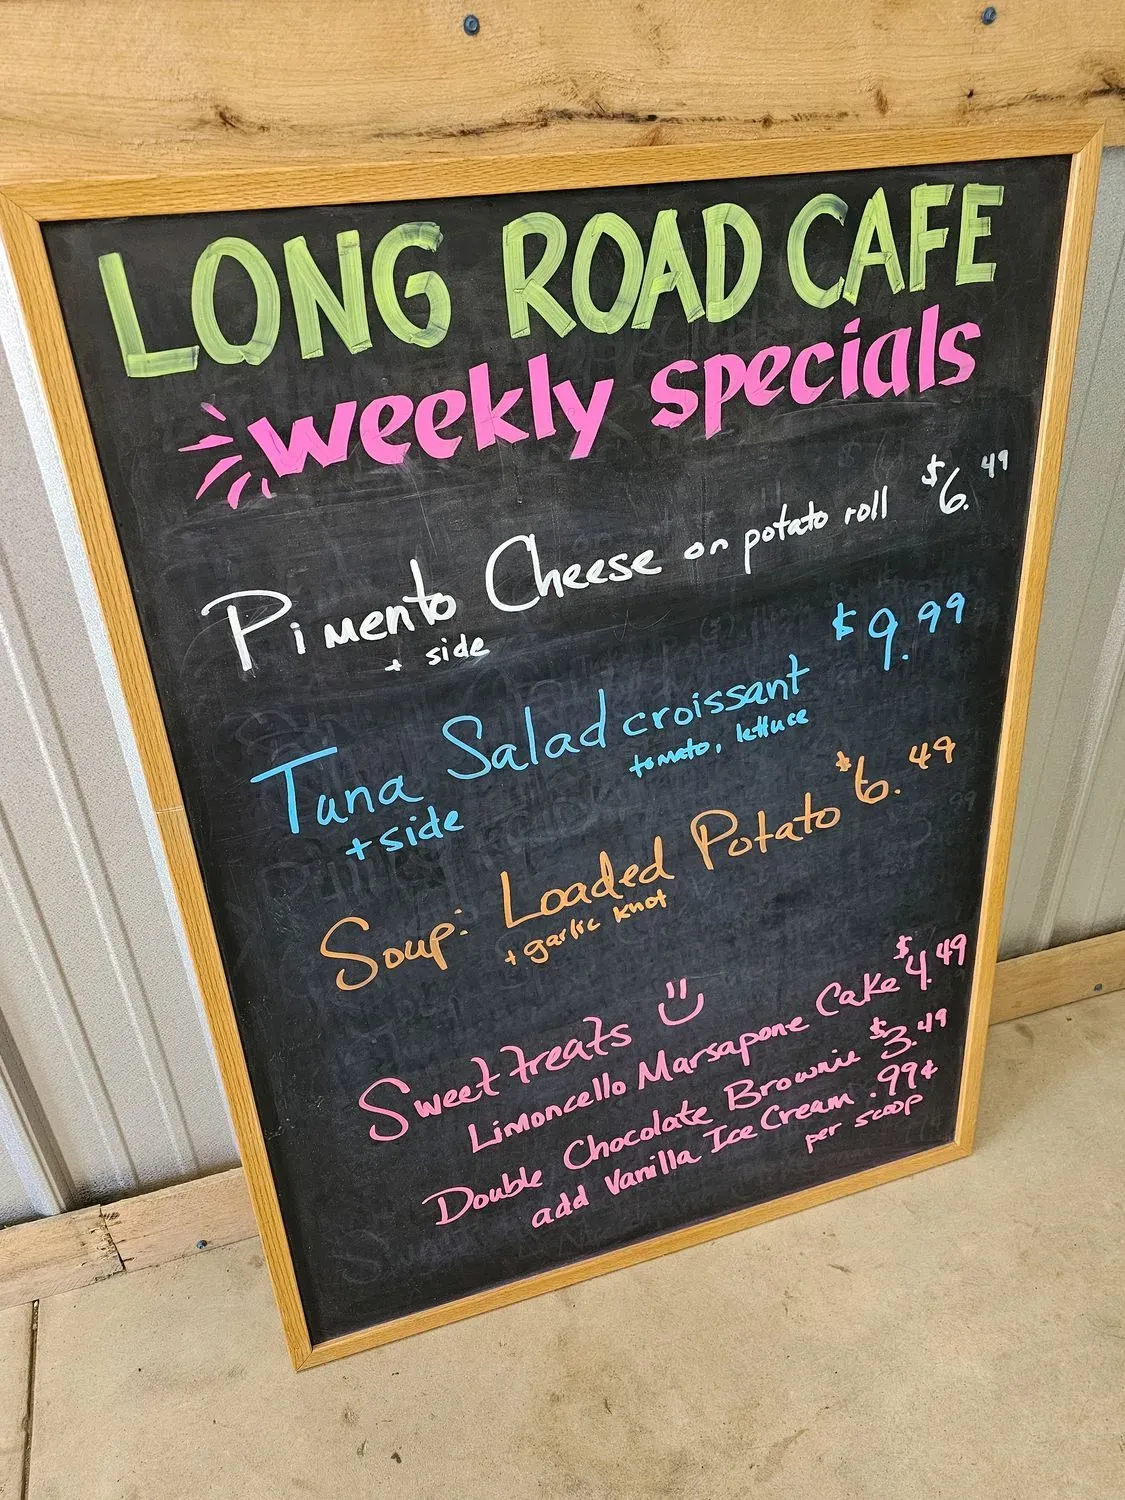 LONG ROAD CAFE
weekly specials
Pimento Cheese on potato roll $6.49
+ side
Tuna Salad croissant $9.99
tomato, lettuce
+ side
Soup: Loaded Potato $6.49
+ garlic knot
Sweet treats
Limoncello Marsapone Cake $4.49
Double Chocolate Brownie $3.49
add Vanilla Ice Cream .99¢
per scoop